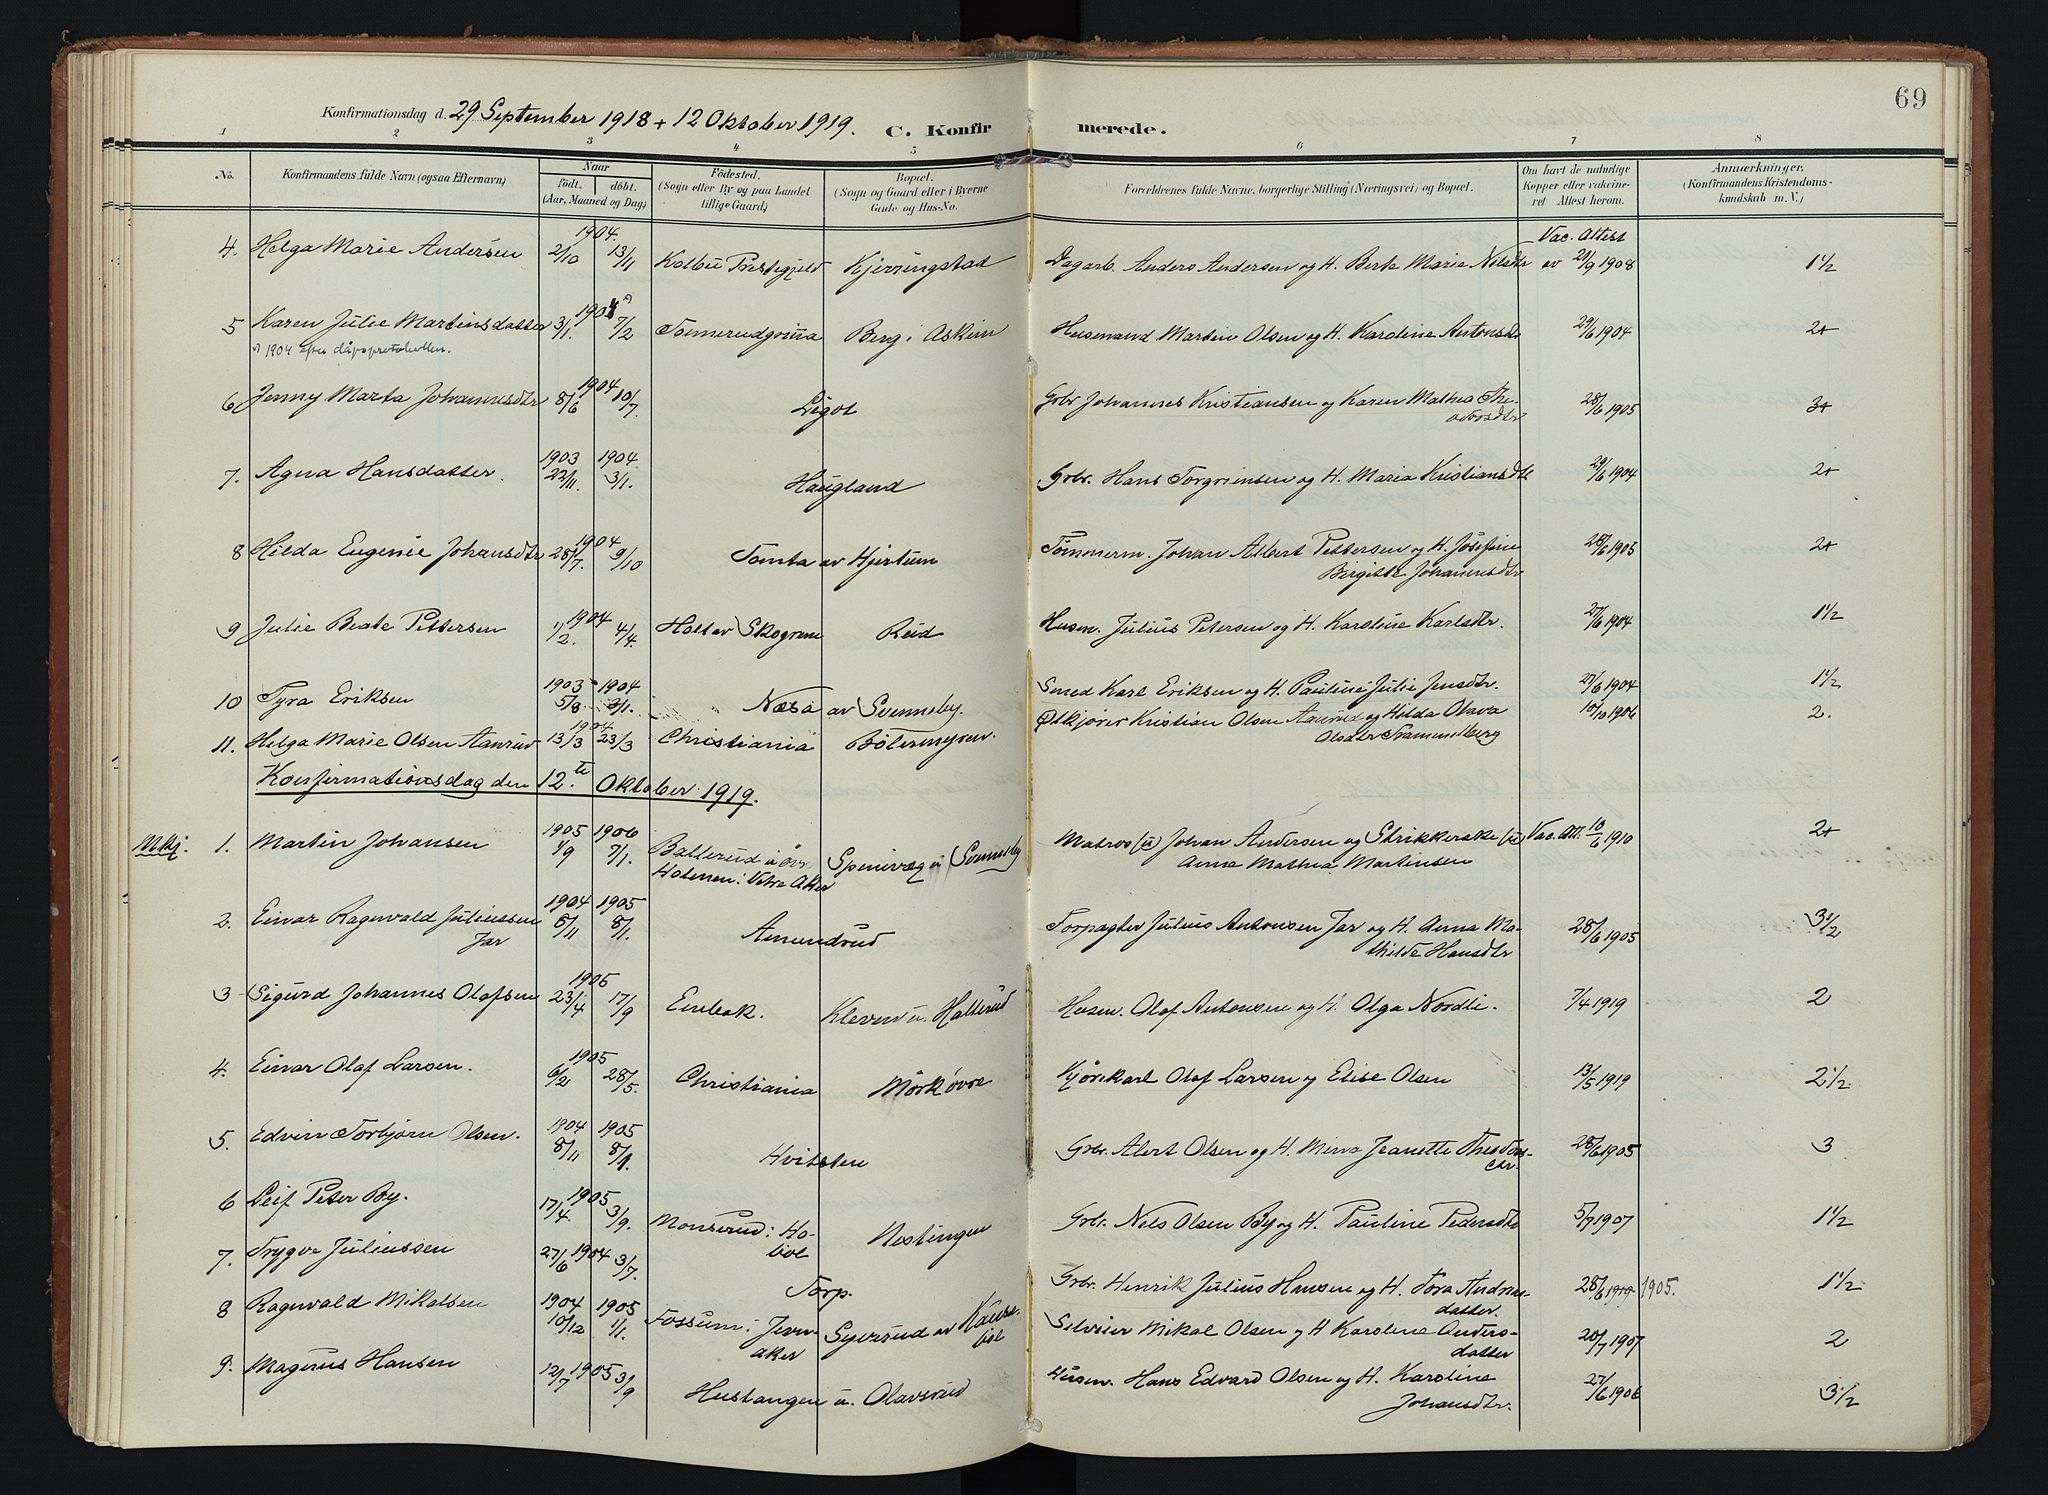 69
Konfirmationsdag d. 29 September 1918 + 12 Oktober 1919. C. Konfirmerede.
1 2 3 4 5 6 7 8
No. Konfirmandens fulde Navn (ogsaa Efternavn) Naar født. døbt. (Aar, Maaned og Dag) Fødested. (Sogn eller By og paa Landet tillige Gaard) Bopæl. (Sogn og Gaard eller i Byerne Gade og Hus-No. Forældrenes fulde Navne, borgerlige Stilling (Næringsvei) og Bopæl. Om havt de naturlige Kopper eller vakcineret Attest herom. Anmærkninger. (Konfirmandens Kristendomskundskab m. V.)
4. Helga Marie Andersen 1904. 2/10 13/11 Kolbu Prestegjeld Kjerringstad Dagarb. Anders Andersen og H. Berte Marie Nilsdtr Vac. Attest av 21/9 1908 1 1/2
5 Karen Julie Martinsdatter 1904 3/1. 7/2 Tömmerudgrina Berg i Askim Husmand Martin Olsen og H. Karoline Antonsdtr 29/6 1904 2+
1904 efter dåpsprotokollen.
6 Jenny Marta Johannesdtr 1904 8/6 10/7. Ligol Grbr. Johannes Kristiansen og Karen Mathea Theodorsdtr 28/6 1905 3+
7. Agna Hansdatter. 1903 22/11. 1904. 3/1. Haugland Grbr. Hans Torgrimsen og H. Maria Kristiansdtr 29/6 1904 2+
8 Hilda Eugenie Johansdtr 1904 28/7. 9/10 Tomta av Hjertum Tömmerm. Johan Albert Pettersen og H. Josefine
Birgitte Johannesdtr 28/6 1905 2+
9 Julie Beate Pettersen 1904 1/2. 4/4. Holt av Skogrem Rud Husm. Julius Petersen og H. Karoline Karlsdtr. 27/6 1904 1 1/2
10 Tyra Eriksen 1903 5/8 1904 3/1. Næsa av Svenneby. Smed Karl Eriksen og H. Pauline Julie Jensdtr. 27/6 1904 1 1/2
11. Helga Marie Olsen Aanrud 1904 13/3 23/3 Christiania Bölermyren. Ölkjörer Kristian Olsen Aanrud og Hilda Olava
Olsdtr Framundberg 10/10 1906 2.
Konfirmationsdag den 12.te Oktober 1919.
Mkj. 1. Martin Johansen 1905 1/9 1906 7/1. Ballerud u övr
Holmen: Vetre Aker Spinivæg u Svenneby Matros (u) Johan Andersen og Strikkerske (u)
Anna Mathea Martinsen Vac. Att. 10/6 1910 2+
2. Einar Ragnvald Juliussen
Jar 1904 8/11 1905 8/1. Amundrud Forpagter Julius Antonsen Jar og H. Anna Mathilde Hansdtr 28/6 1905 3 1/2
3 Sigurd Johannes Olafsen 1905 23/4 17/9 Enebak. Kleven u. Hallerud Husm. Olaf Antonsen og H. Olga Nordli. 7/4 1919 2
4. Einar Olaf Larsen. 1905 6/2 28/5. Christiania Mörk övre Kjörekarl Olaf Larsen og Elise Olsen 13/5 1919 2 1/2
5. Edvin Torbjörn Olsen. 1904 8/11 1905 8/1. Hvitsten Grbr. Alert Olsen og H. Minna Jeanette Theodorsdtr. 28/6 1905 3
6 Leif Peter By. 1905 17/4. 3/9. Monserud: Hobøl Nestingen Grbr. Nils Olsen By og H. Pauline Pedersdtr 5/9 1907 1 1/2
7. Trygve Juliussen 27/6 1904 3/7. Torp. Grbr. Henrik Julius Hansen og H. Tora Andreasdatter. 28/6 1919 1905. 1 1/2
8 Ragnvald Mikalsen 1904 10/12 1905 1/1. Fossum: Jevnaker Syverud av Kausebøl Selveier Mikal Olsen og H Karoline Andersdatter 20/7 1907 2
9. Magnus Hansen 12/7 1905 3/9 Huslangen u. Olavsrud Husm. Hans Edvard Olsen og H. Karoline
Johansdtr. 27/6 1906 3 1/2